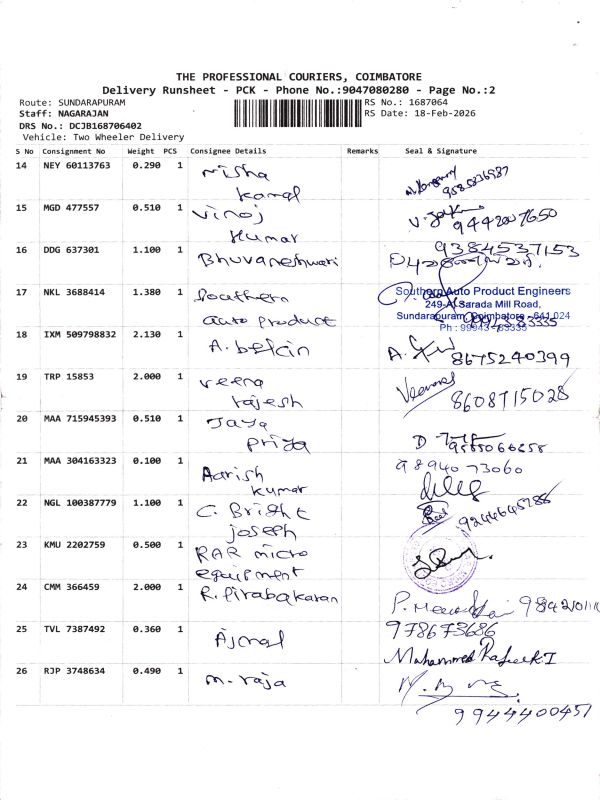 THE PROFESSIONAL COURIERS, COIMBATORE
Delivery Runsheet - PCK - Phone No.:9047080280 - Page No.:2
Route: SUNDARAPURAM RS No.: 1687064
Staff: NAGARAJAN RS Date: 18-Feb-2026
DRS No.: DCJB168706402
Vehicle: Two Wheeler Delivery
S No Consignment No Weight PCS Consignee Details Remarks Seal & Signature
14 NEY 60113763 0.290 1 nisha
kamal
15 MGD 477557 0.510 1 vinoj 9442007650
kumar
16 DDG 637301 1.100 1 Bhuvaneshwari 9384537153
17 NKL 3688414 1.380 1 Southern
auto product
Southern Auto Product Engineers
249-A, Sarada Mill Road,
Sundarapuram, Coimbatore - 641 024
Ph : 99943 - 83335
18 IXM 509798832 2.130 1 A. belcin 8675240399
19 TRP 15853 2.000 1 veena
rajesh 8608715028
20 MAA 715945393 0.510 1 Jaya
priya
21 MAA 304163323 0.100 1 Aarish 9894073060
kumar
22 NGL 100387779 1.100 1 C. Bright
joseph
23 KMU 2202759 0.500 1 RAR micro
equipment
24 CMM 366459 2.000 1 R. Pirabakaran
25 TVL 7387492 0.360 1 Ajmal
Muhammed Rafeek I
26 RJP 3748634 0.490 1 m. raja
9944400451